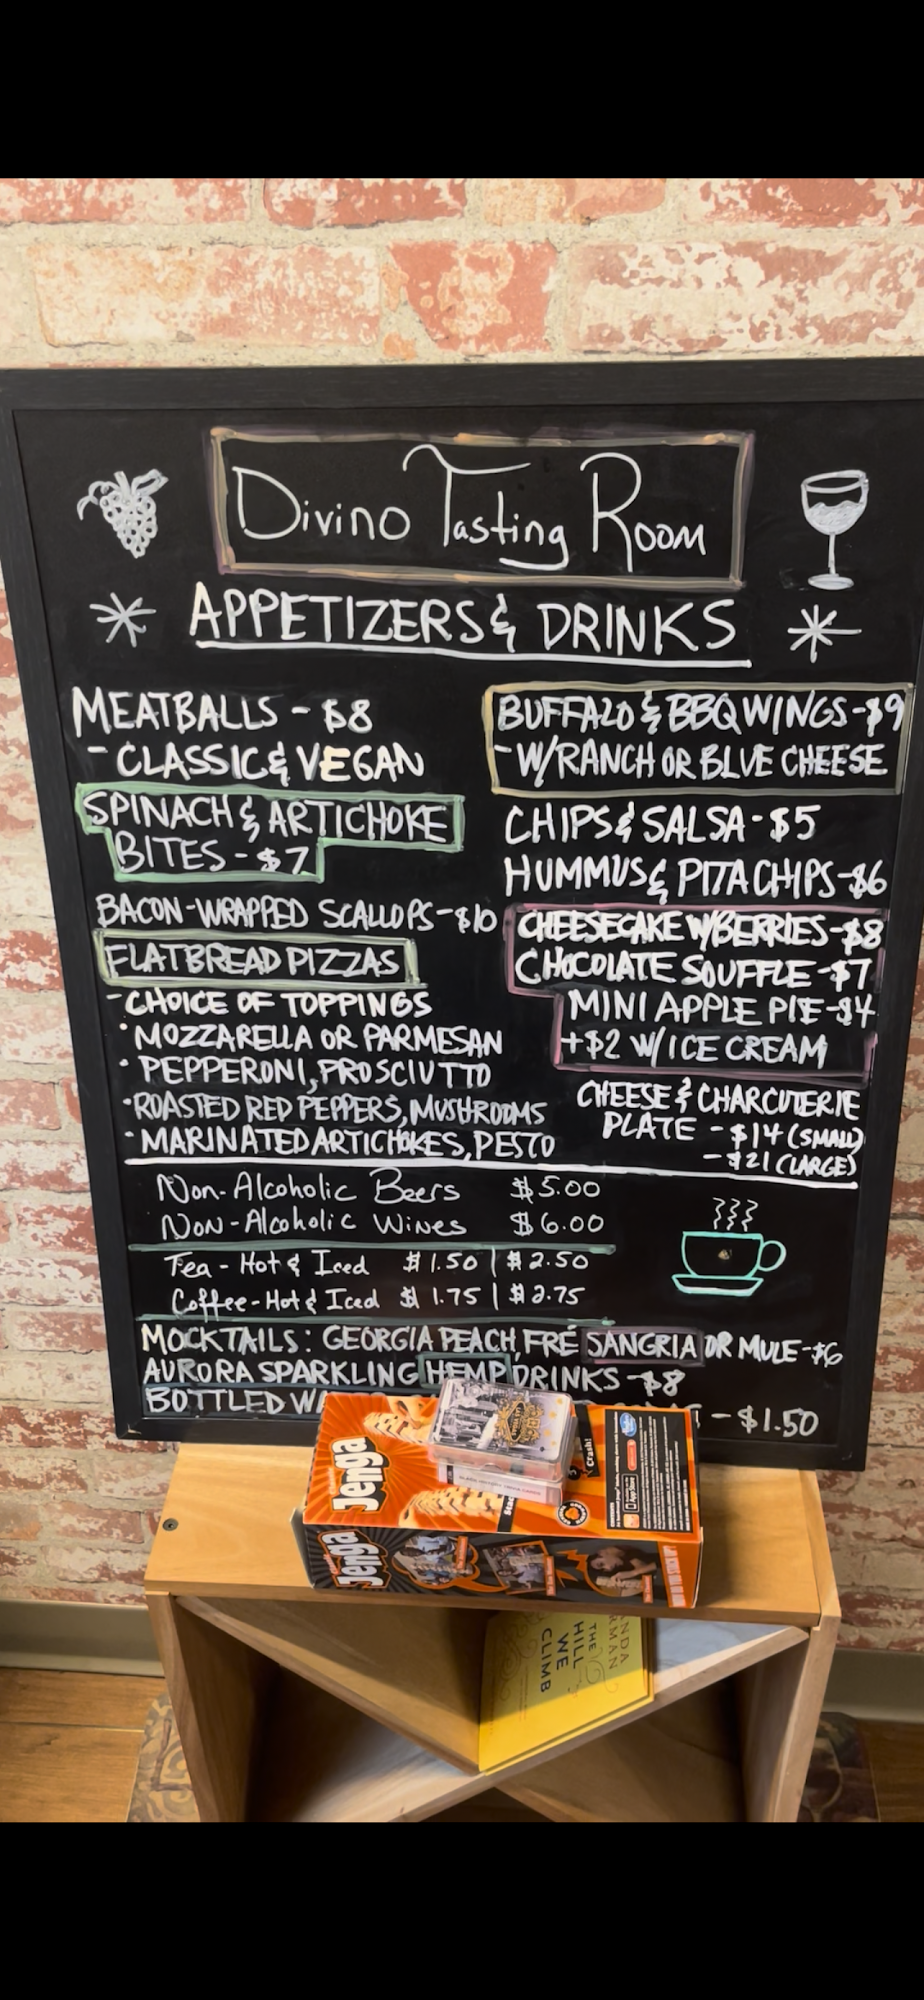 Divino Tasting Room
APPETIZERS & DRINKS
MEATBALLS - $8
- CLASSIC & VEGAN
SPINACH & ARTICHOKE
BITES - $7
BACON-WRAPPED SCALLOPS - $10
FLATBREAD PIZZAS
- CHOICE OF TOPPINGS
• MOZZARELLA OR PARMESAN
• PEPPERONI, PROSCIUTTO
• ROASTED RED PEPPERS, MUSHROOMS
• MARINATED ARTICHOKES, PESTO
BUFFALO & BBQ WINGS - $9
- W/RANCH OR BLUE CHEESE
CHIPS & SALSA - $5
HUMMUS & PITA CHIPS - $6
CHEESECAKE W/BERRIES - $8
CHOCOLATE SOUFFLE - $7
MINI APPLE PIE - $4
+$2 W/ICE CREAM
CHEESE & CHARCUTERIE
PLATE - $14 (SMALL)
- $21 (LARGE)
Non-Alcoholic Beers $5.00
Non-Alcoholic Wines $6.00
Tea - Hot & Iced $1.50 | $2.50
Coffee - Hot & Iced $1.75 | $2.75
MOCKTAILS: GEORGIA PEACH, FRÉ SANGRIA OR MULE - $6
AURORA SPARKLING HEMP DRINKS - $8
BOTTLED - $1.50
Jenga
Crash!
Jenga
THE
HILL
WE
CLIMB